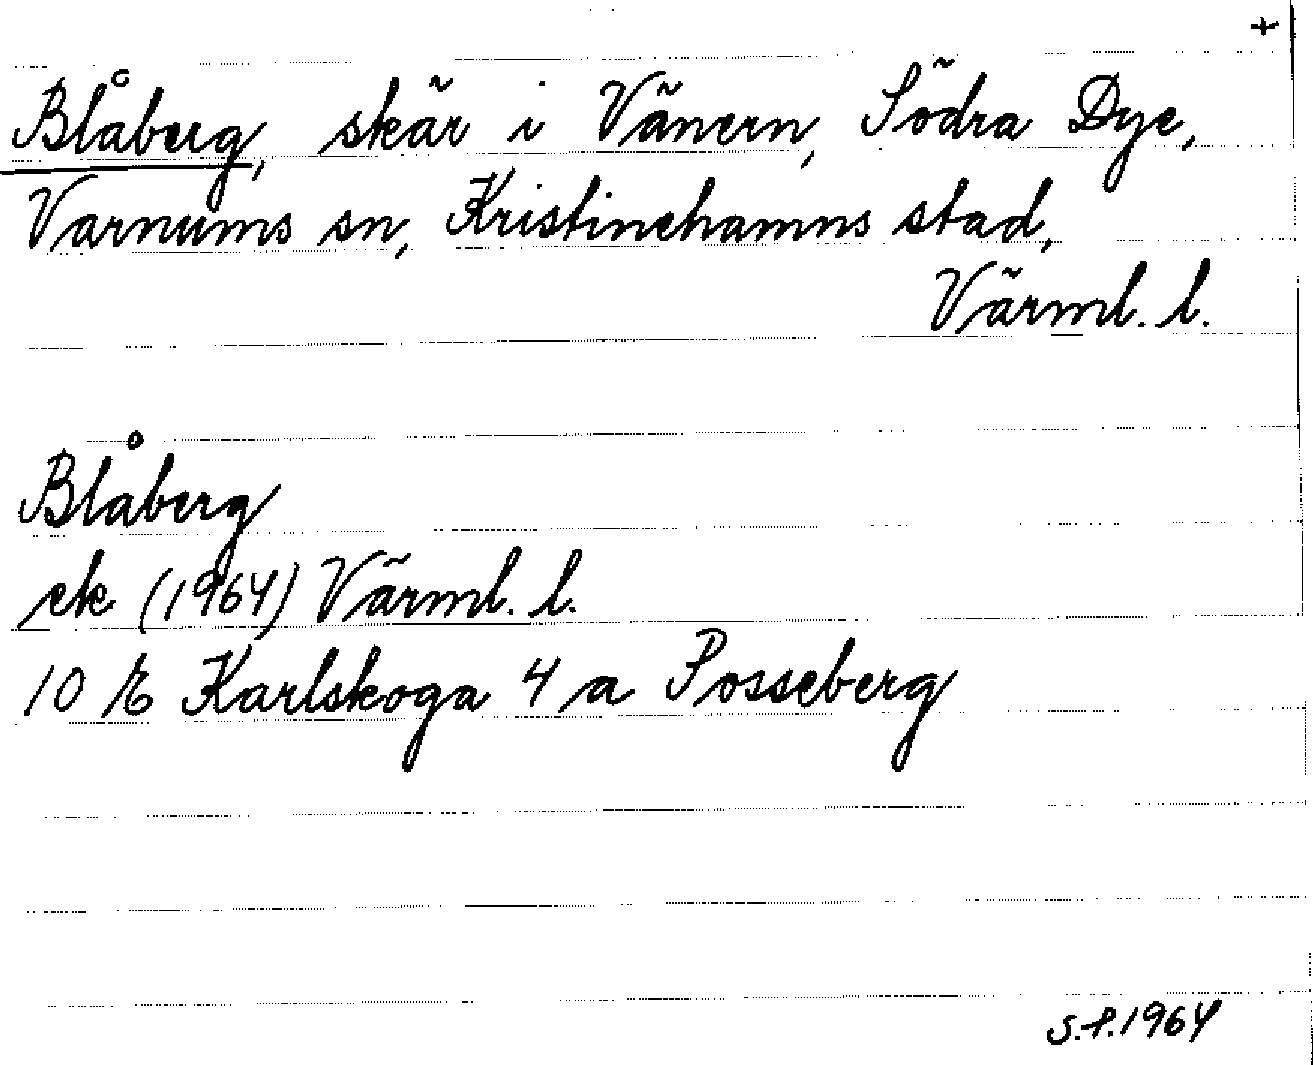 +
Blåberg, skär i Vänern, Södra Dye,
Varnums sn, Kristinehamns stad,
Värml. l.
Blåberg
ek (1964) Värml. l.
10 E Karlskoga 4 a Posseberg
S.P. 1964